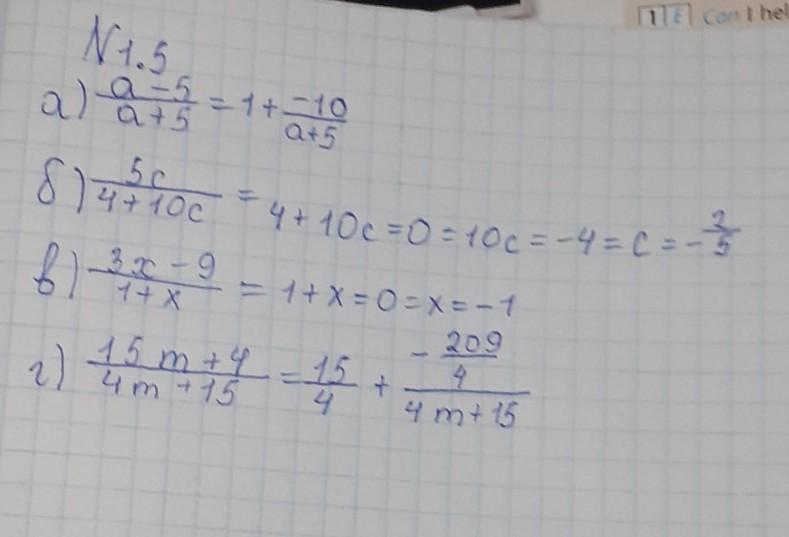 1 E Can I hel
N1.5
а) (a-5)/(a+5) = 1 + (-10)/(a+5)
б) (5c)/(4+10c) = 4+10c=0=10c=-4=c=-2/5
в) (3x-9)/(1+x) = 1+x=0=x=-1
г) (15m+4)/(4m+15) = 15/4 + (-209/4)/(4m+15)